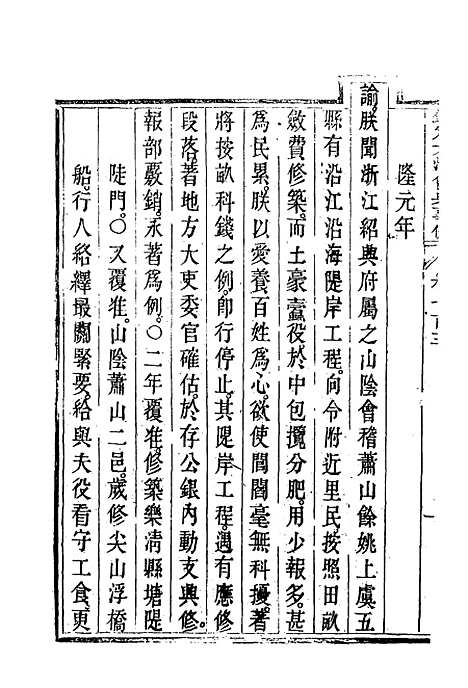 隆元年
諭。朕聞浙江紹興府屬之山陰會稽蕭山餘姚上虞五
縣有沿江沿海隄岸工程。向令附近里民。按照田畝
斂費修築。而土豪蠹役。於中包攬分肥。用少報多。甚
爲民累。朕以愛養百姓爲心。欲使閭閻毫無科擾。著
將按畝科錢之例。卽行停止。其隄岸工程。遇有應修
段落。著地方大吏委官確估。於存公銀內動支興修。
報部覈銷。永著爲例。○二年覆准。修築樂清縣塘隄
陡門。○又覆准。山陰蕭山二邑。歲修尖山浮橋
船。行人絡繹最關緊要。給與夫役看守工食。更